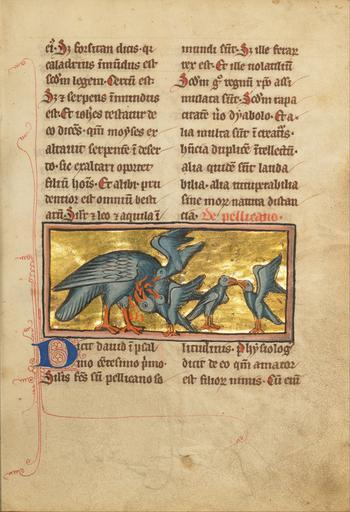 ei. Sz forsitan dicis. qr
caladrius inmūdus est
scdm legem. Certū est.
Sz ⁊ serpens inmundus
est. Et iohēs testatur de
eo dicēs. qm moyses ex
altauit serpentē ī deser
to. sic exaltari oportet
filiū hoīs. Et alibi. pru
dentior est omnium besti
arū. Sīr ⁊ leo ⁊ aquila ī
mundi sūt. Sz ille ferar
rex est. Et ille uolatiliū
Scdm gͦ regnū xpō assi
milata sūt. Scdm rapa
citatē uͦ dyabolo. Et a
lia multa sūt ī creatīs.
hn̄cia duplicē ītellectū.
alia quidē sūt lauda
bilia. alia uituperabilia
siue morͣ natura distan
cia. De pellicano.
Dicit dauid ī psal
mo centesimo pͥmo.
Silis fcs sū pellicano so
litudinis. Phisiolog
dicit de eo qm amator
est filiorͣ nimis. Cū eni